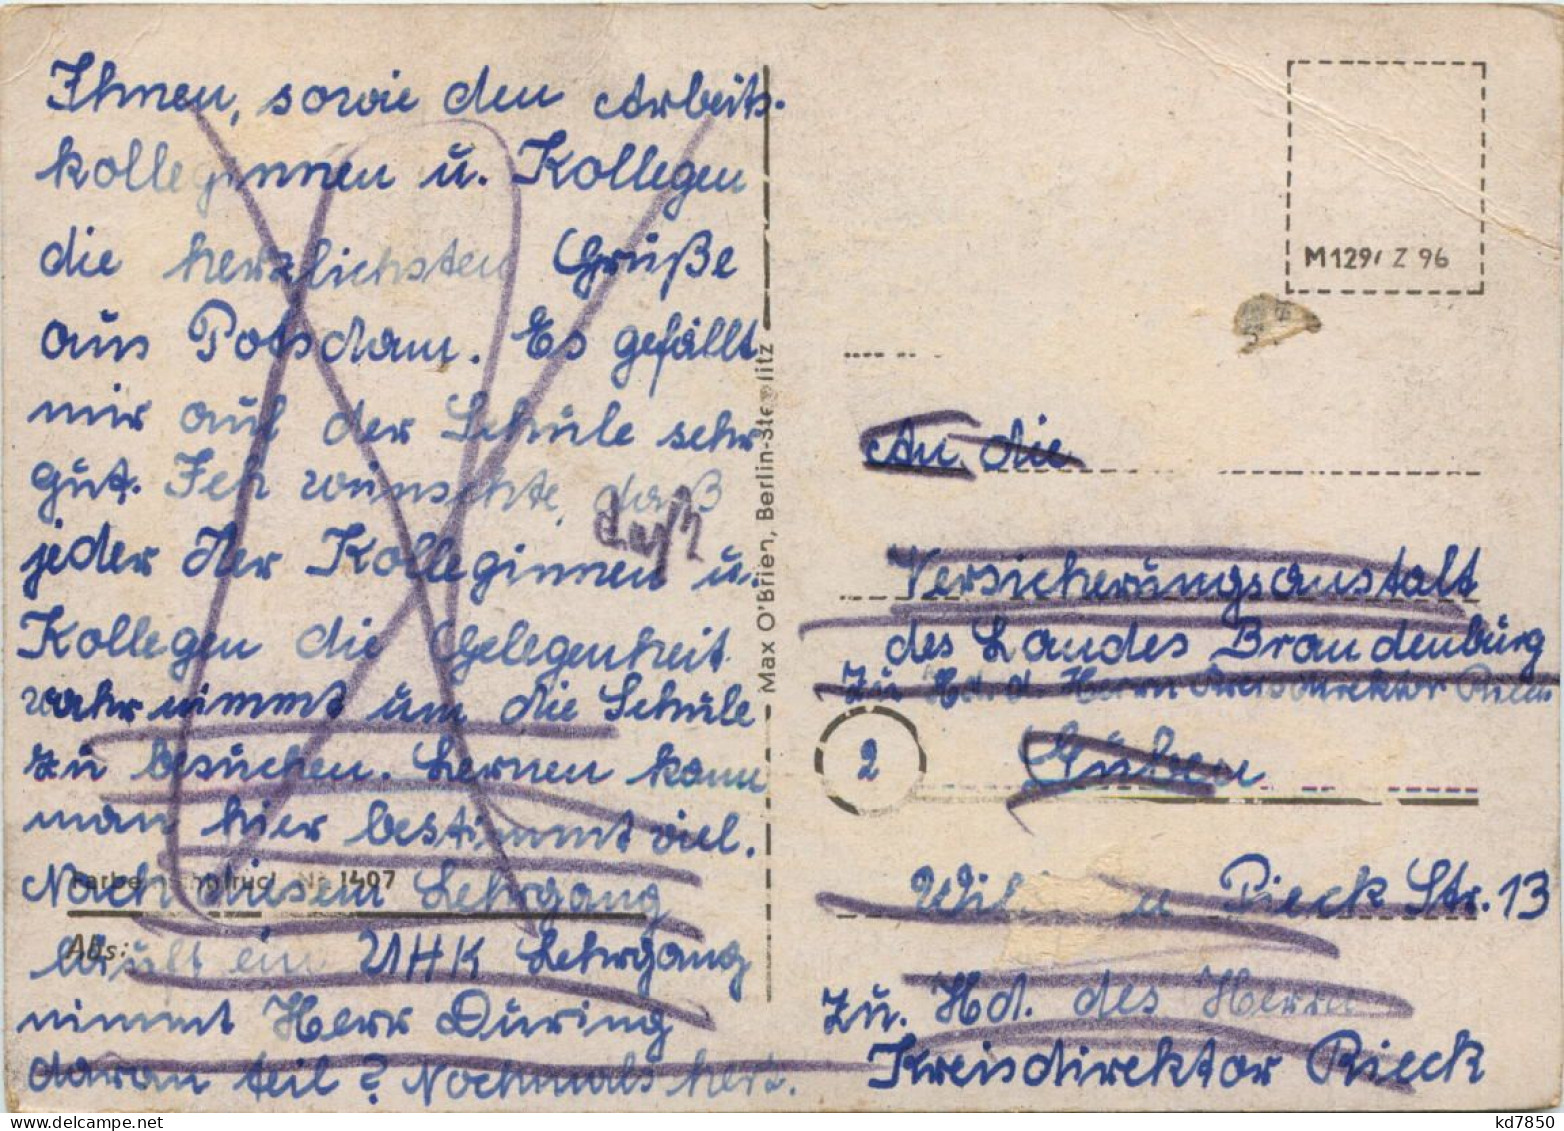 Ihnen, sowie den Arbeits-
kolleginnen u. Kollegen
die herzlichsten Grüße
aus Potsdam. Es gefällt
mir auf der Schule sehr
gut. Ich wünschte, daß
daß
jeder der Kolleginnen u.
Kollegen die Gelegenheit
wahrnimmt um die Schule
zu besuchen. Lernen kann
man hier bestimmt viel.
Nach diesem Lehrgang
läuft ein UHK Lehrgang
nimmt Herr Düring
daran teil? Nochmals herz.
Nr. 1407
Abs:
Max O'Brien, Berlin-Steglitz
M129/ Z 96
An die
Versicherungsanstalt
des Landes Brandenburg
Zu Hd. d. Herrn Kreisdirektor Rieck
2
Guben
Pieck Str. 13
Zu. Hd. des Herrn
Kreisdirektor Rieck
kd7850